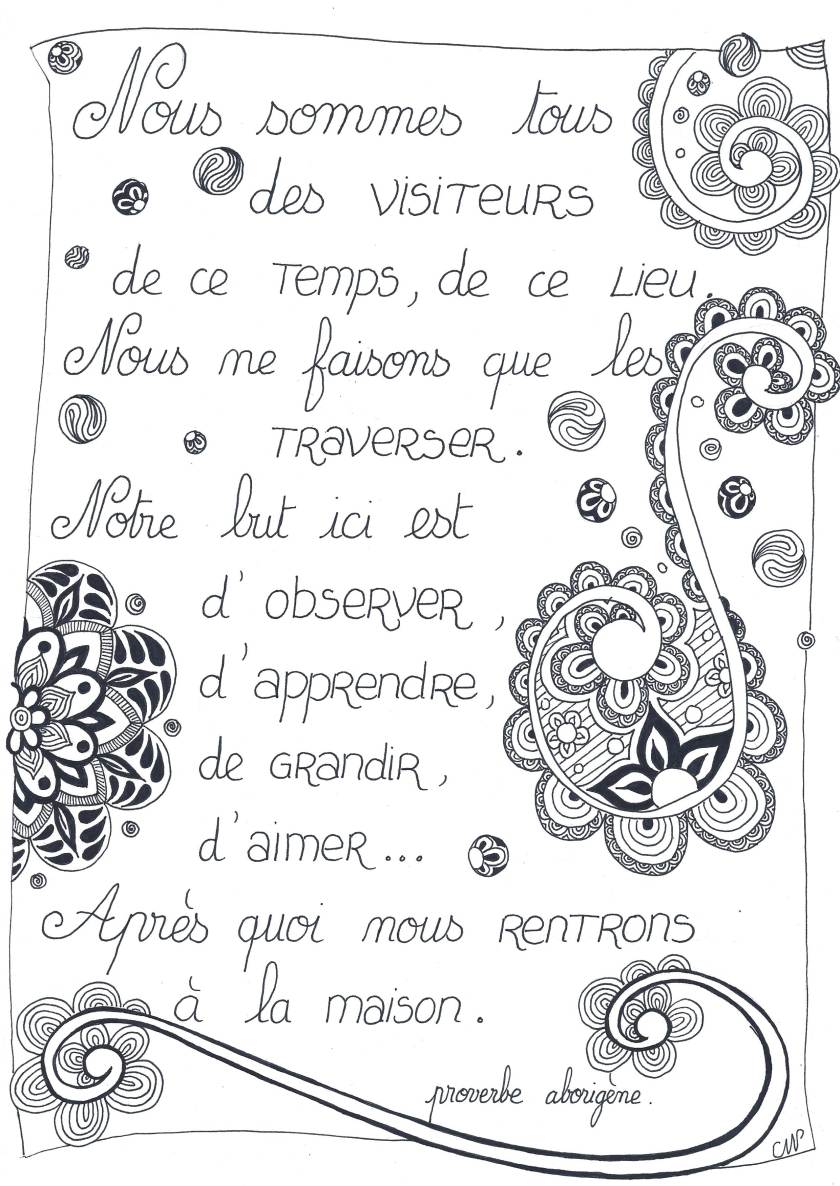 Nous sommes tous
des visiteurs
de ce temps, de ce lieu.
Nous ne faisons que les
traverser.
Notre but ici est
d'observer,
d'apprendre,
de grandir,
d'aimer...
Après quoi nous rentrons
à la maison.
proverbe aborigène.